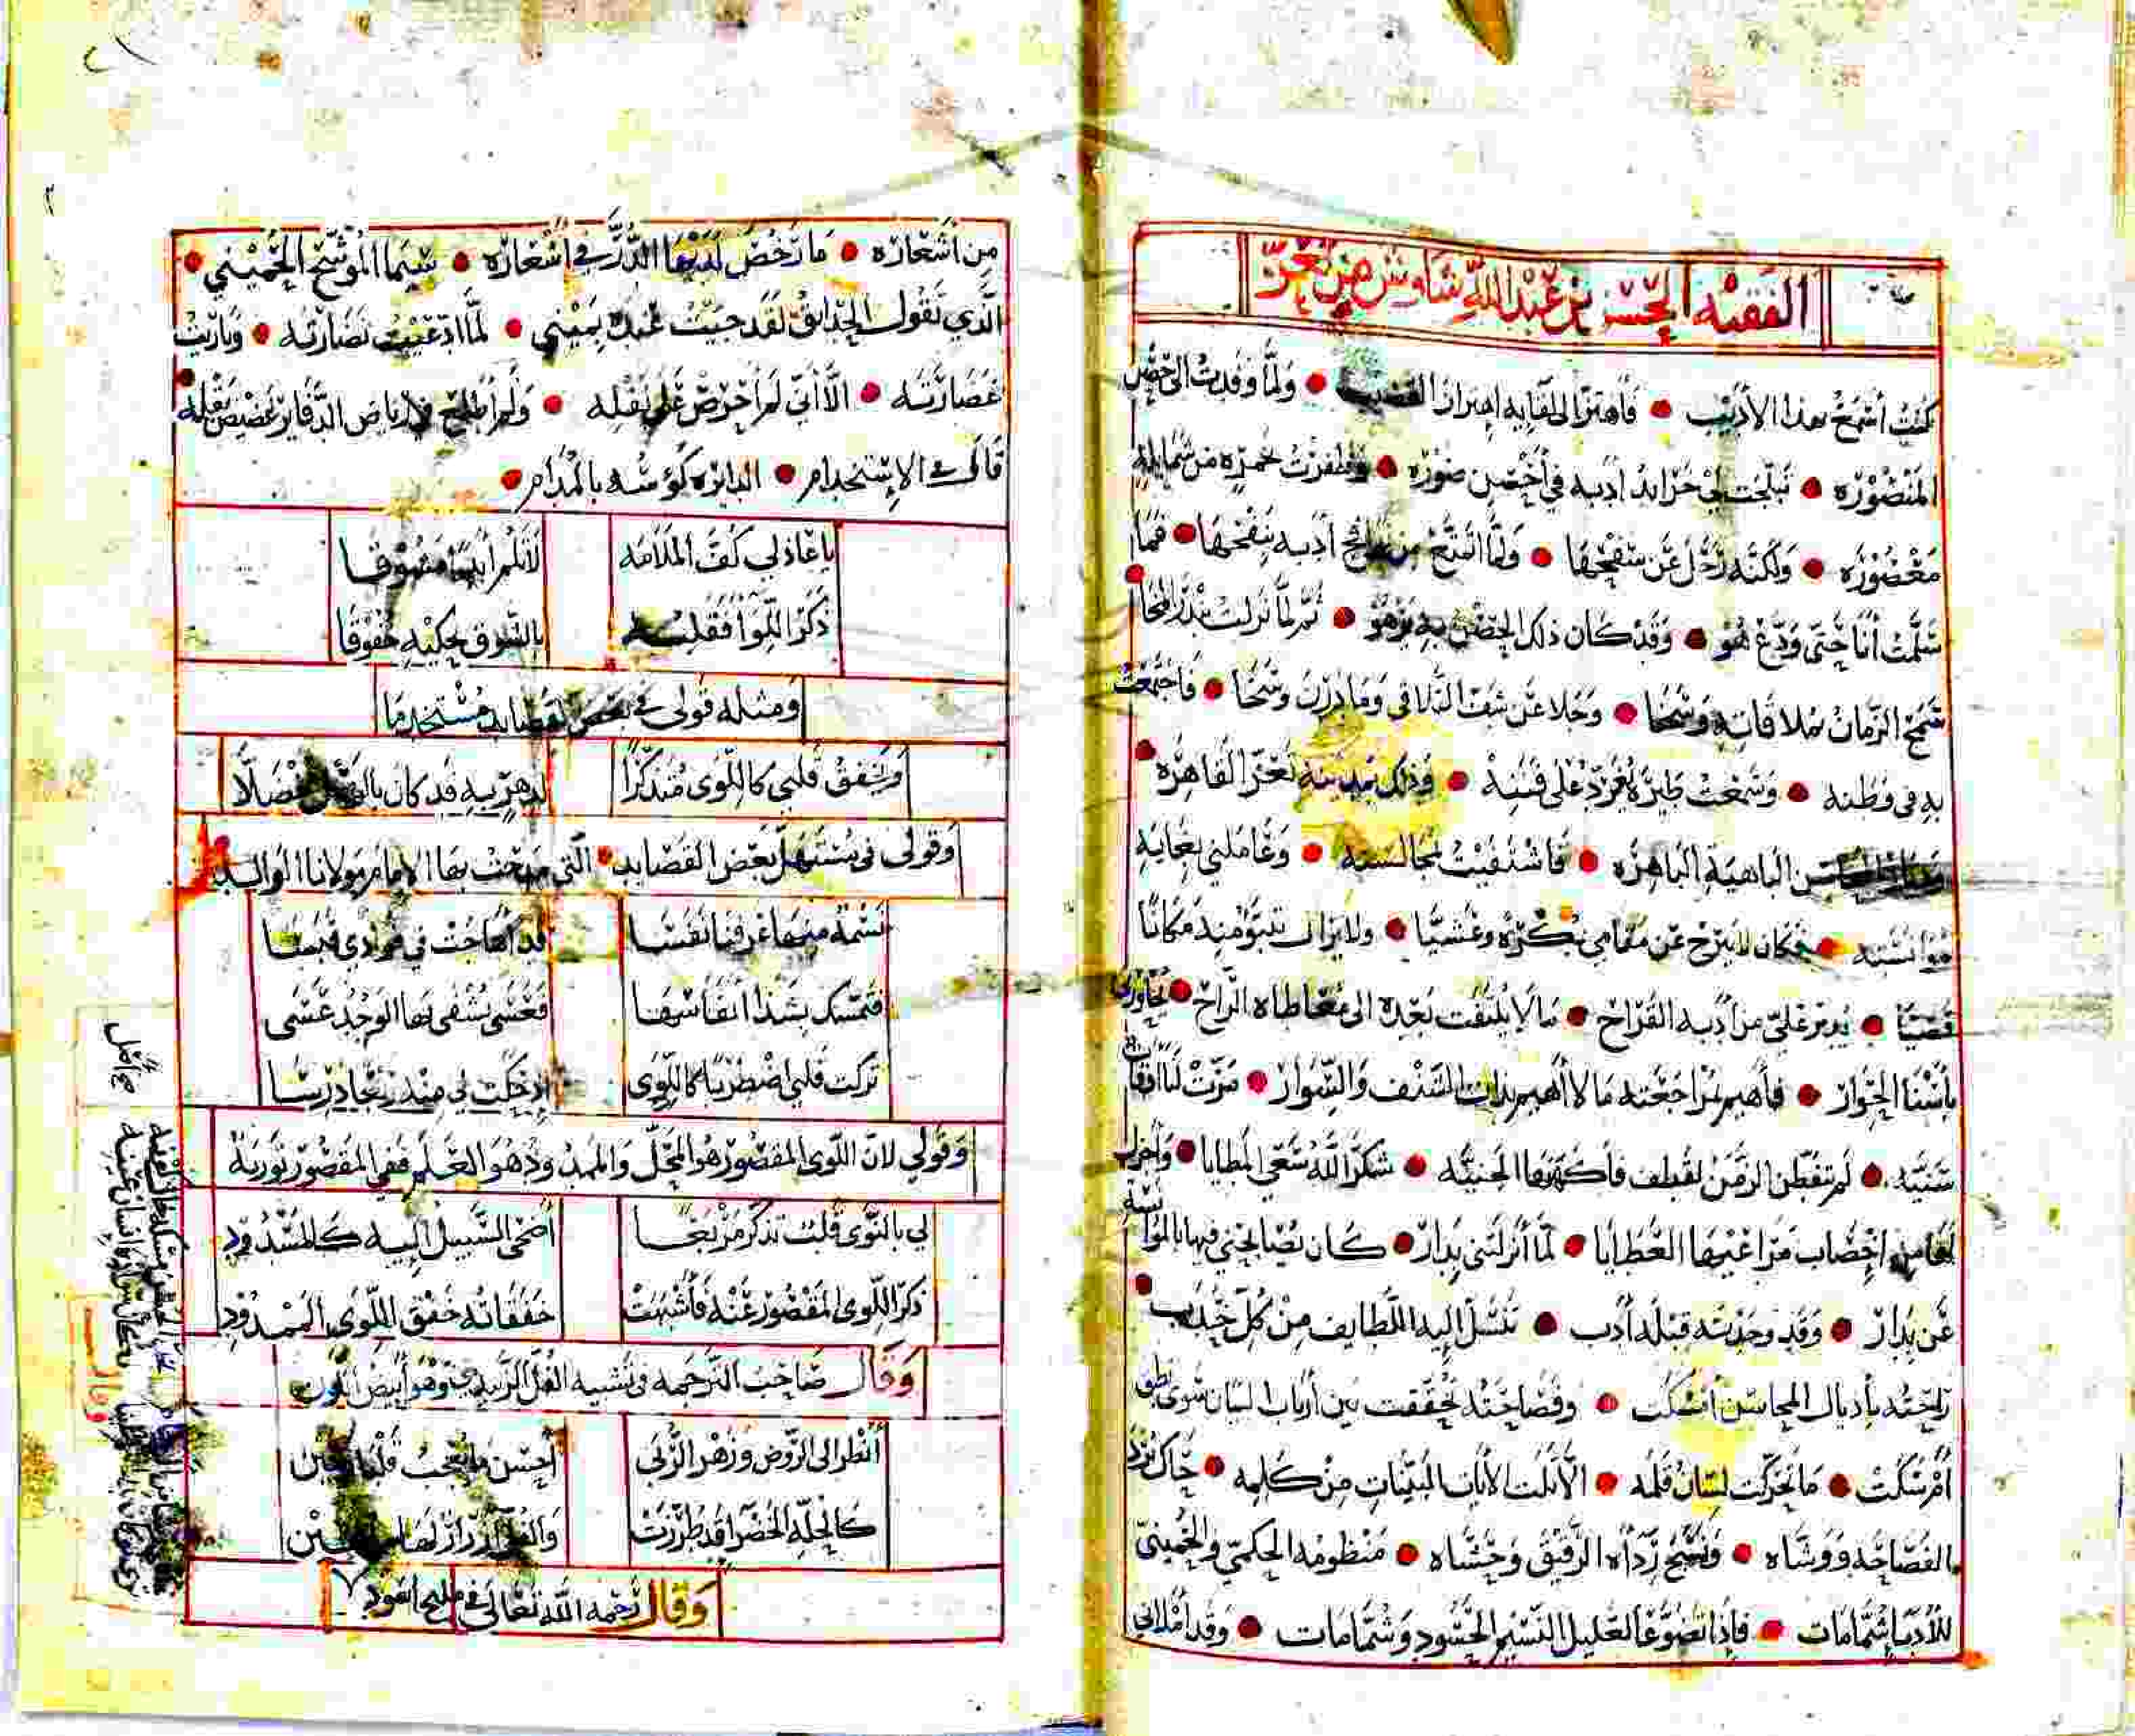 الفقيه الحسن بن عبدالله شاوش من تعز
كنت أسمع بهذا الأديب • فأهتز الى لقايه اهتزاز القضيب • ولما وفدت الى حضن
المنصوره • تبلجت لي خرايد أدبه في أحسن صوره • وظفرت بخمرة من شمايله
معصوره • ولكنه رحل عن سفحها • ولما انتشع من أدبه بنفحها • فما
سلمت أنا حتى ودع هو • وقد كان ذلك الحضن به يزهو • ثم لما نزلت بندر المخا
سمح الزمان بملاقاته وسخا • وجلا عن شفق التلاقي وما درن وسخا • فاجتمعت
به في وطنه • وسمعت طيره يغرد على فننه • وذلك بمدينة تعز القاهره
المحاسن الباهية الباهره • فاشتفيت بمجالسته • وعاملني بغاية
مؤانسته • فكان لا يبرح عن مقامي بكرة وعشيا • ولا يزال يتبوأ منه مكانا
قصيا • يدير علي من أدبه القراح • ما لا يلتفت بعده الى معاطاه الراح • تجاوزني
بأسنا الجوار • فأهيم بمراجعته ما لا أهيم بذات الشنف والسوار • مرت لنا أوقات
سنيه • لم يتفطن الزمن لقطف فاكهتها الجنيه • شكر الله سعي المطايا • وأجزل
لها من اخصاب مراعيها العطايا • لما أنزلتني بدار • كان يصابحني فيها بالموانسة
عن بدار • وقد وجدته قبلة أدب • تنسل اليه اللطايف من كل حدب •
راحته بأذيال المحاسن أمسكت • وفصاحته تحققت بين أرباب اللسان سوى نطق
أم سكت • ما تحركت لسان قلمه • الا تلت الأيات البينات من كلمه • حاك برد
الفصاحه ووشاه • ونسج رداه الرقيق وحشاه • منظومه الحكمي والحميني
للأدبا شمامات • فاذا تضوع العليل النسيم الحسود وشمامات • وقد أملا لي
من أشعاره • ما رخص لديها الدر في أسعاره • سيما الموشح الحميني •
الذي تقول الحدايق لقد جنيت عنه بيميني • لما ادعيت نضارته • وباريت
غضارته • الا أني لم أحرص على نقله • ولم أطلع في رياض الدفاتر غضيض بقله •
قال في الاستخدام • الدايره كؤسه بالمدام •
يا عاذلي كف الملامه لا تلم أبدا مشوقا
ذكر اللوا فقلبه بالشوق يحكيه خفوقا
ومثله قولي في بعض قصايدي مستخدما
ويخفق قلبي كاللوى متذكرا لدهر به قد كان بالوصل مفضلا
وقولي في مستهل بعض القصايد • التي مدحت بها الامام مولانا الوالد •
نسمة منها عرفنا نفسا قد أهاجت في فوادي قبسا
فتمسك بشذا أنفاسها فعسى يشفى بها الوجد عسى
تركت قلبي اضطربا كاللوى اذ حكت لي منه ربعا درسا
وقولي لان اللوى المقصور هو المحل والممدود هو العلم ففي المقصور تورية
لي باللوى قلب تذكر مربعا أضحى السبيل اليه كالمسدود
ذكر اللوى المقصور عنه فأشبهت خفقاته خفق اللوى الممدود
وقال صاحب الترجمه في تشبيه الفل الزبيدي وهو أبيض اللون
أنظر الى الروض وزهر الربى أحسن ما يعجب قلبا وعين
كالحلة الخضرا قد طرزت والفل أزرار لها من لجين
وقال رحمه الله تعالى في مليح أسود